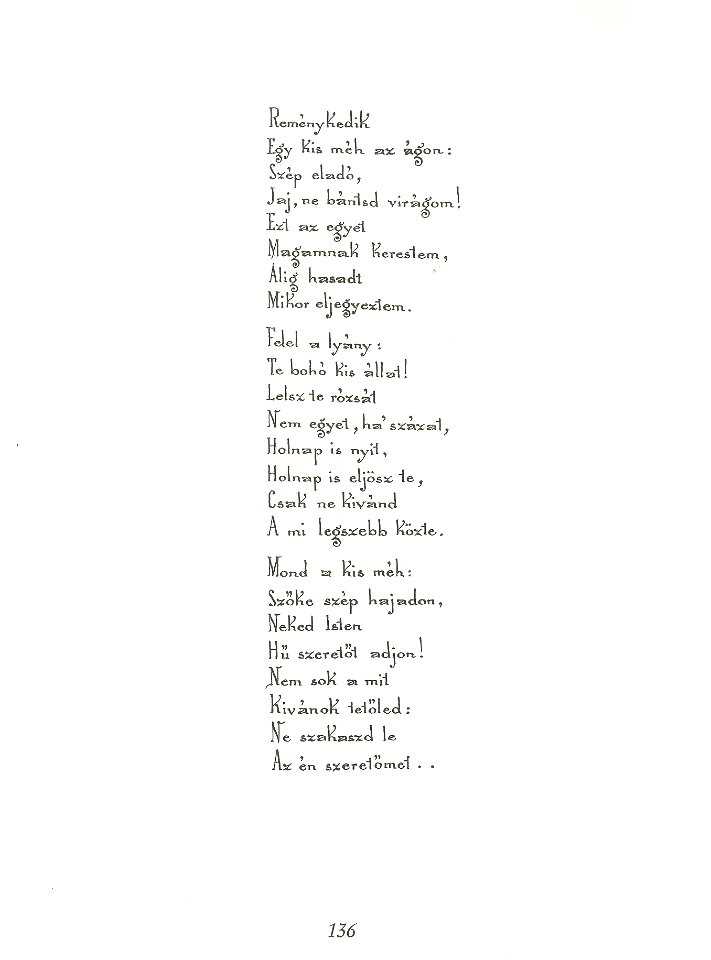 Reménykedik
Egy kis méh az ágon:
Szép eladó,
Jaj, ne bántsd virágom!
Ezt az egyet
Magamnak kerestem,
Álig hasadt
Mikor eljegyeztem.
Felel a lyány:
Te bohó kis állat!
Lelsz te rózsát
Nem egyet, ha' százat,
Holnap is nyit,
Holnap is eljösz te,
Csak ne kivánd
A mi legszebb közte.
Mond a kis méh:
Szőke szép hajadon,
Neked Isten
Hű szeretőt adjon!
Nem sok a mit
Kivánok tetőled:
Ne szakaszd le
Az én szeretőmet . .
136